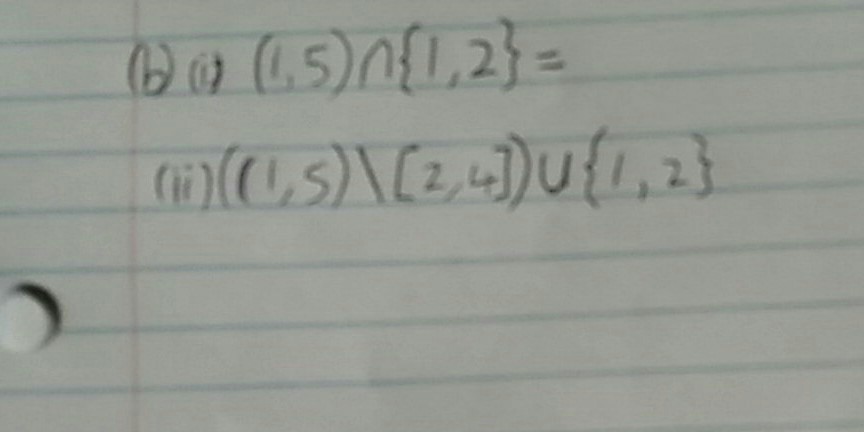 (b) (i) (1,5)∩{1,2}=
(ii)((1,5)\[2,4])∪{1,2}